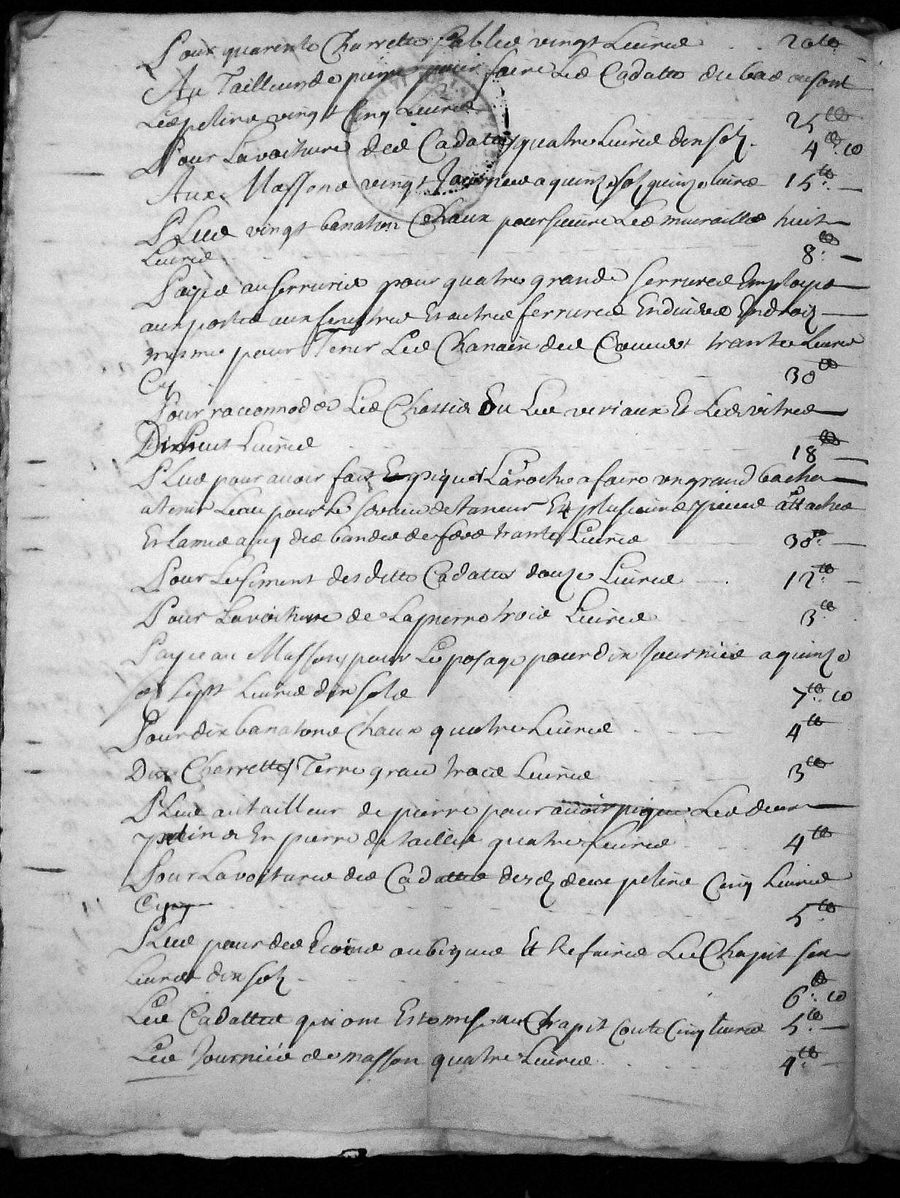 Pour quarente Charrettes Sable vingt Livres 20lt
Au Tailleur de pierre pour faire Les Cadattes du bas ou sont
Les peline vingt Cinq Livres 25lt
Pour La voiture des Cadattes quatre Livres dix solz 4lt 10
Aux Massons vingt Journées a quinze solz quinze livres 15lt
Plus vingt banatons Chaux pour suivre Les murailles huit
Livres 8lt
Payé au serrurié pour quatre grande serrures Employé
aux portes aux fenestres Et autres ferrures En divers Endroiz
mesme pour Tenir Les Chanain des trante Livres
Cy 30lt
Pour racomoder Les Chassis Ou Les veriaux Et Les vitres
Dixhuit Livres 18lt
Plus pour avoir fait Enpiquer La roche a faire un grand bachat
a tenir L'eau pour Le de taneur Et plusieurs piece attachée
Et des bandes de fer trante Livres 30lt
Pour Le siment des ditte Cadattes douze Livres 12lt
Pour La voiture de La pierre trois Livres 3lt
Payé au Masson pour Le posage pour dix Journées a quinze
sept Livres dix sols 7lt 10
Pour dix banatons Chaux quatre Livres 4lt
Dix Charrettes Terre grasse trois Livres 3lt
Plus au tailleur de pierre pour avoir piqué Les deux
peline En pierre de taillie quatre Livres 4lt
Pour La voiture des Cadattes desd deux peline Cinq Livres
Cy 5lt
Plus pour des Et Refaire Le Chapit six
Livres dix solz 6lt 10
Les Cadattes qui ont Esté mise au Chapit Coute Cinq livres 5lt
Les Journées de masson quatre Livres 4lt